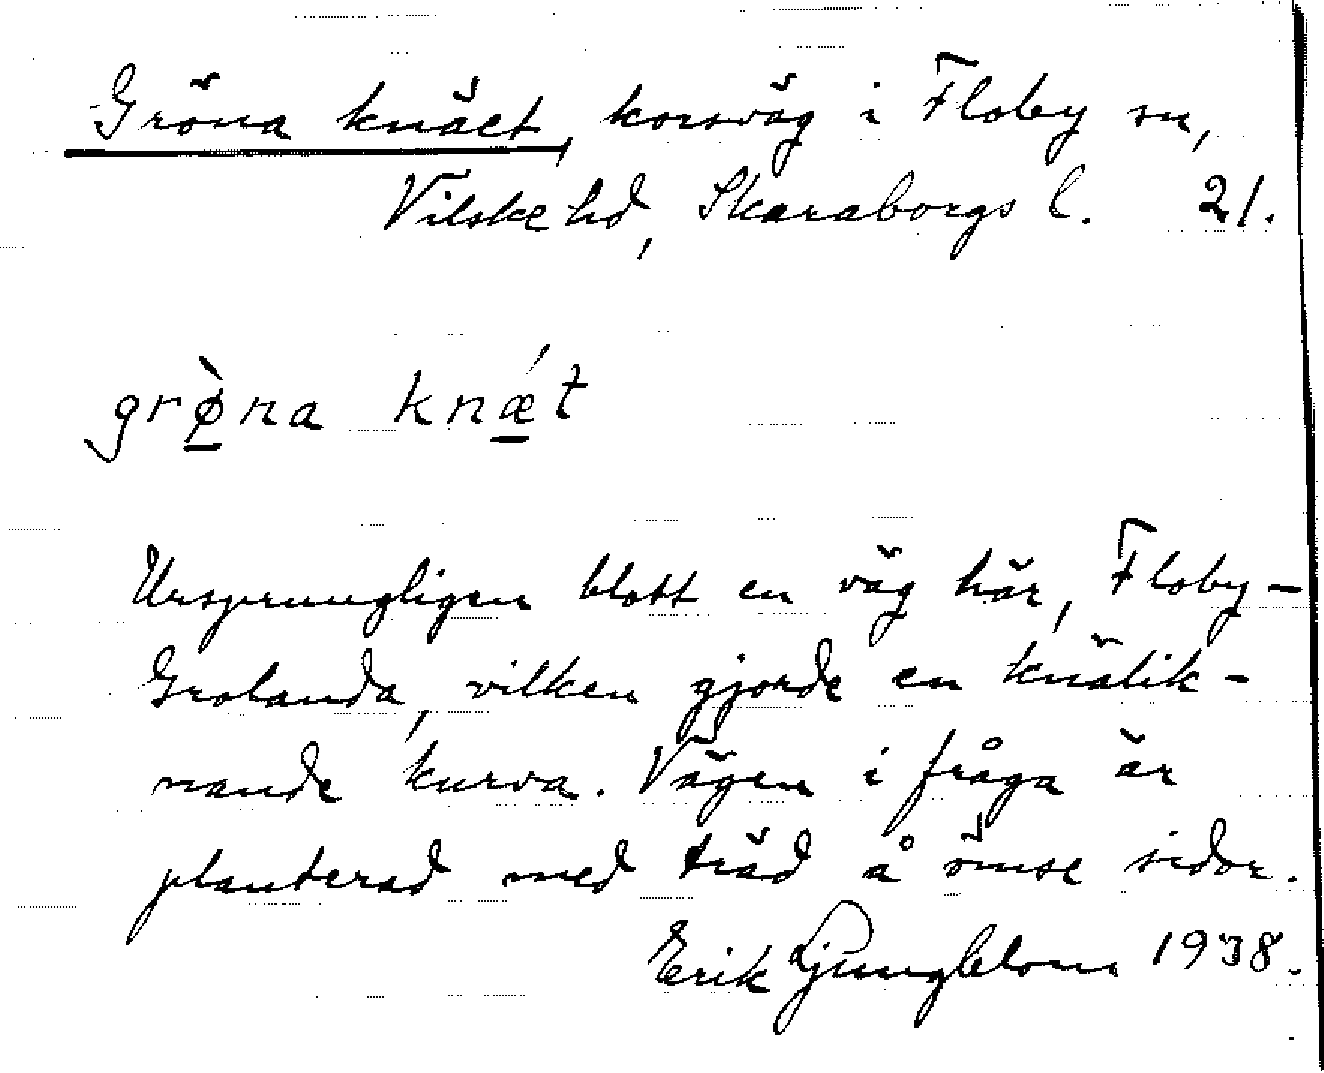 Gröna knäet, korsväg i Floby sn,
Vilske hd, Skaraborgs l. 21.
grø̱̀na knǽ̱t
Ursprungligen blott en väg här, Floby-
Grolanda, vilken gjorde en knälik-
nande kurva. Vägen i fråga är
planterad med träd å ömse sidor.
Erik Ljungblom 1938.